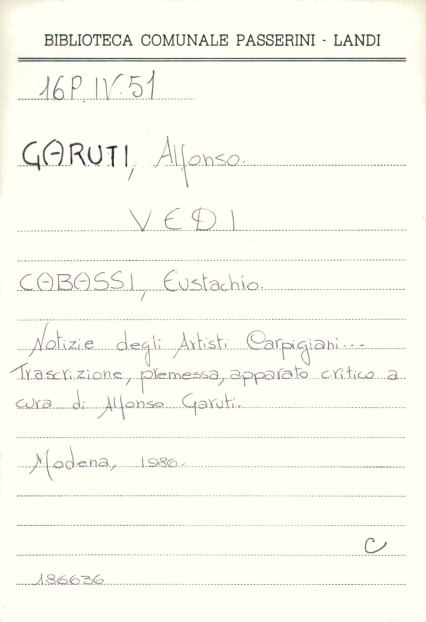 BIBLIOTECA COMUNALE PASSERINI - LANDI
16P.IV.51
GARUTI, Alfonso.
VEDI
CABASSI, Eustachio.
Notizie degli Artisti Carpigiani...
Trascrizione, premessa, apparato critico a
cura di Alfonso Garuti.
Modena, 1986.
C
186636